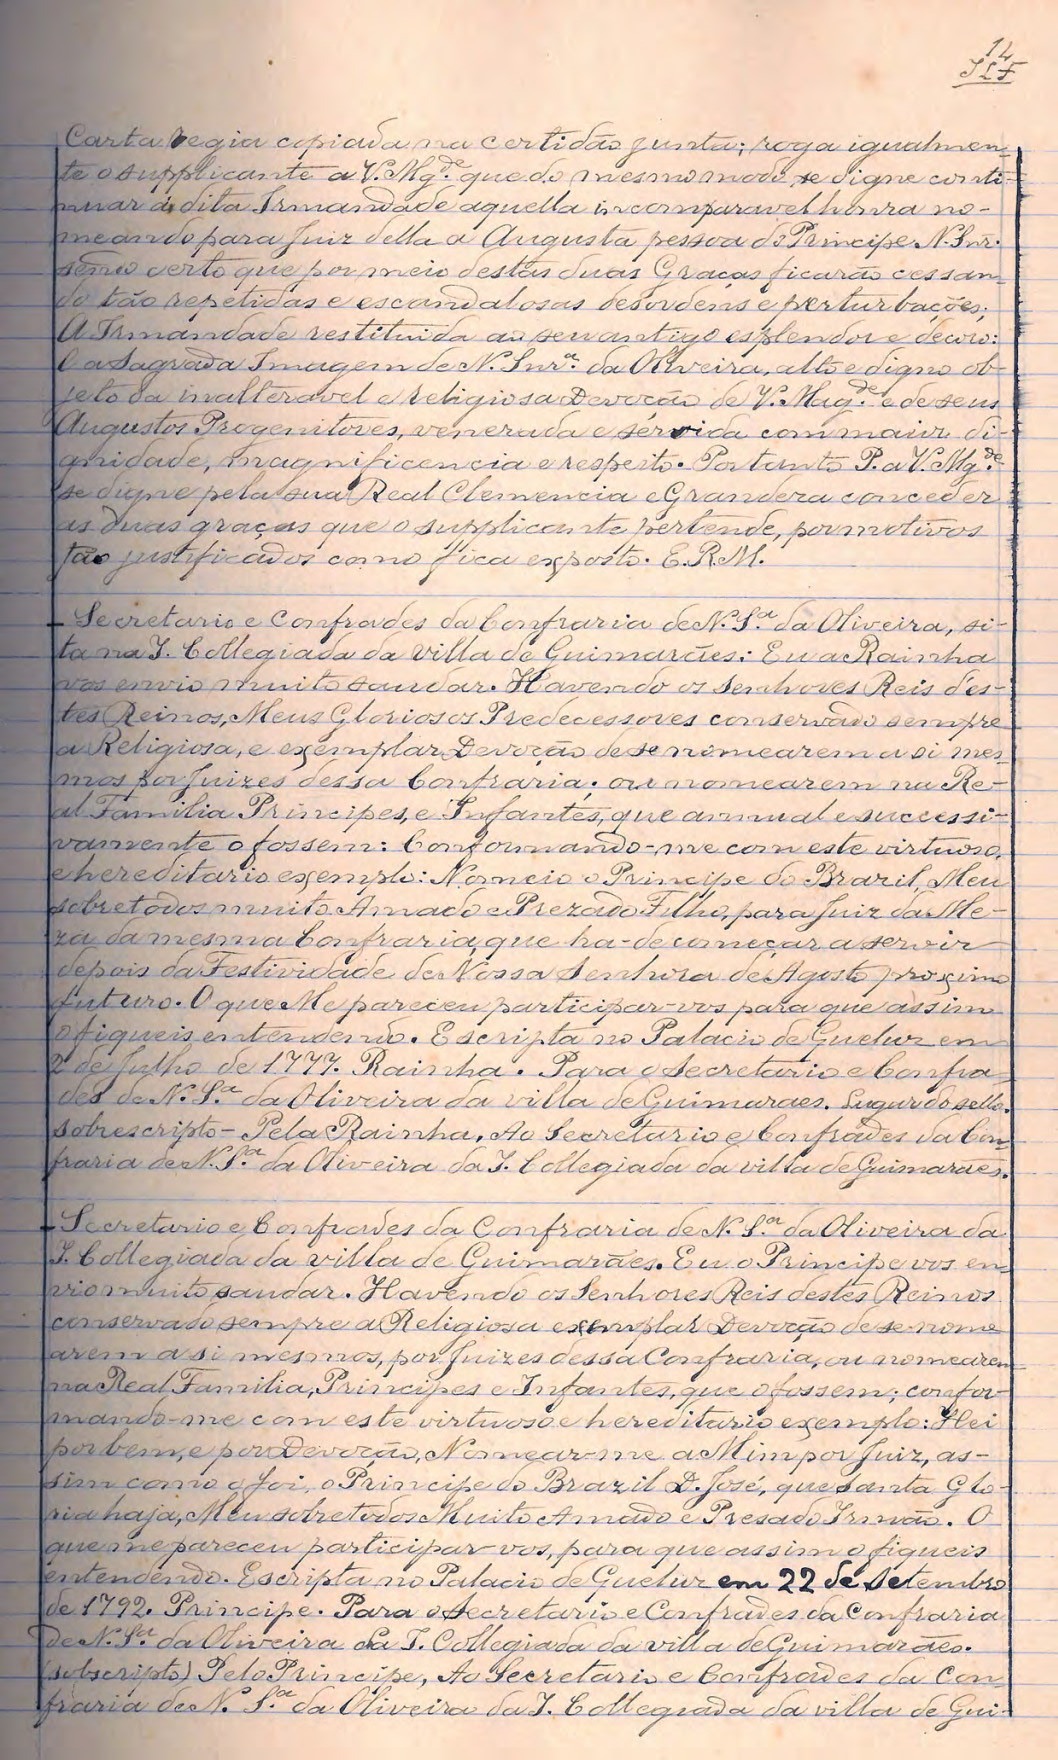 14
Carta regia copiada na certidão junta; roga igualmen-
te o supplicante a V. Mg.de que do mesmo modo se digne conti-
nuar á dita Irmandade aquella incomparavel honra no-
meando para Juiz della a Augusta pessoa do Principe N. Snr.
sendo certo que por meio destas duas Graças ficarão cessan-
do tão repetidas e escandalosas desordens e perturbações;
A Irmandade restituida ao seu antigo esplendor e decoro:
E a Sagrada Imagem de N. Snr.a da Oliveira, alto e digno ob-
jeto da inalteravel e religiosa Devoção de V. Mag.de e de seus
Augustos Progenitores, venerada e servida com maior di-
gnidade, magnificencia e respeito. Portanto P. a V. Mg.de
se digne pela sua Real Clemencia e Grandeza conceder
as duas graças que o supplicante pertende, por motivos
tão justificados como fica exposto. E. R. M.
Secretario e Confrades da Confraria de N. S.a da Oliveira, si-
ta na I. Collegiada da villa de Guimarães: Eu a Rainha
vos envio muito saudar. Havendo os Senhores Reis d'es-
tes Reinos, Meus Gloriosos Predecessores conservado sempre
a Religiosa, e exemplar Devoção de se nomearem a si mes-
mos por Juizes dessa Confraria; ou nomearem na Re-
al Familia Principes, e Infantes, que annual e successi-
vamente o fossem: Conformando-me com este virtuoso,
e hereditario exemplo: Nomeio o Principe do Brazil, Meu
sobretodos muito Amado e Prezado Filho, para Juiz da Me-
za da mesma Confraria, que ha-de começar a servir
depois da Festividade de Nossa Senhora de Agosto proximo
futuro. O que Me pareceu participar-vos para que assim
o fiqueis entendendo. Escripta no Palacio de Queluz em
2 de Julho de 1777. Rainha. Para o Secretario e Confra-
des de N. S.a da Oliveira da villa de Guimaraes. Lugar do sello.
Sobrescripto - Pela Rainha, Ao Secretario e Confrades da Con-
fraria de N. S.a da Oliveira da I. Collegiada da villa de Guimarães.
Secretario e Confrades da Confraria de N. S.a da Oliveira da
I. Collegiada da villa de Guimarães. Eu o Principe vos en-
vio muito saudar. Havendo os Senhores Reis destes Reinos
conservado sempre a Religiosa exemplar Devoção de se nome
arem a si mesmos, por Juizes dessa Confraria, ou nomearem
na Real Familia, Principes e Infantes, que o fossem; confor-
mando-me com este virtuoso e hereditario exemplo: Hei
por bem, e por Devoção, Nomear-me a Mim por Juiz, as-
sim como o foi, o Principe do Brazil D. José, que Santa Glo-
ria haja, Meu sobretodos Muito Amado e Presado Irmão. O
que me pareceu participar-vos, para que assim o fiqueis
entendendo. Escripta no Palacio de Queluz em 22 de Setembro
de 1792. Principe. Para o Secretario e Confrades da Confraria
de N. S.a da Oliveira da I. Collegiada da villa de Guimarães.
(subscripto) Pelo Principe, Ao Secretario e Confrades da Con-
fraria de N. S.a da Oliveira da I. Collegiada da villa de Gui-